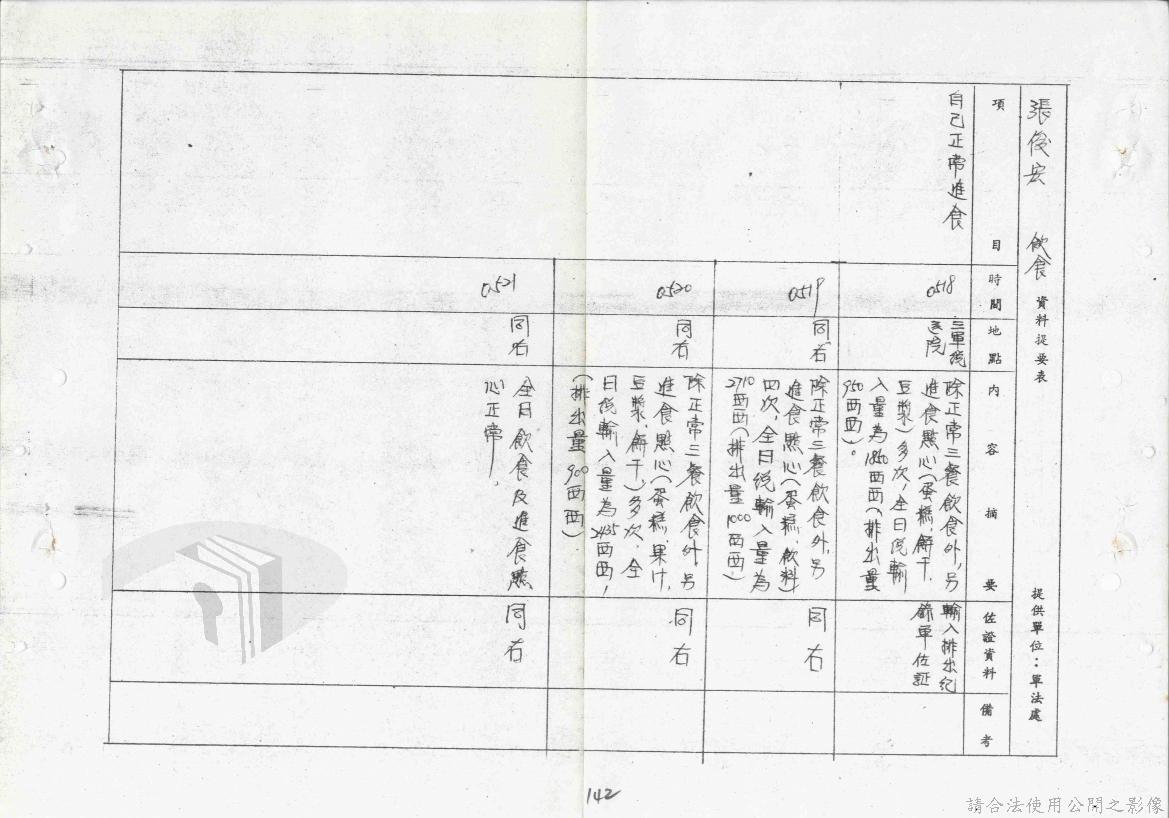 張俊宏 飲食 資料提要表 提供單位：軍法處
項目
時間
地點
內容摘要
佐證資料
備考
自己正常進食
0518
三軍總
醫院
除正常三餐飲食外,另
進食點心(蛋糕,餅干,
豆漿)多次,全日總輸
入量為1850西西(排出量
950西西)。
輸入排出紀
錄單佐証
0519
同右
除正常三餐飲食外,另
進食點心(蛋糕,飲料)
四次,全日總輸入量為
2710西西(排出量1000西西)
同右
0520
同右
除正常三餐飲食外,另
進食點心(蛋糕,果汁,
豆漿,餅干)多次,全
日總輸入量為2435西西,
(排出量900西西)
同右
0521
同右
全日飲食及進食點
心正常。
同右
142
請合法使用公開之影像